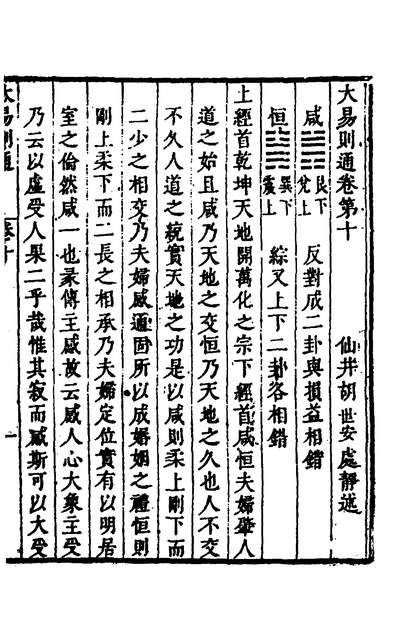 大易則通卷第十　仙井胡世安處靜述
咸䷞艮下兌上　反對成二卦與損益相錯
恒䷟巽下震上　綜又上下二卦各相錯
上經首乾坤天地開萬化之宗下經首咸恒夫婦肇人
道之始且咸乃天地之交恒乃天地之久也人不交
不久人道之統實天地之功是以咸則柔上剛下而
二少之相交乃夫婦感通固所以成婚姻之禮恒則
剛上柔下而二長之相承乃夫婦定位實有以明居
室之倫然咸一也彖傳主感故云感人心大象主受
乃云以虛受人果二乎哉惟其寂而感斯可以大受
大易則通　卷十　一